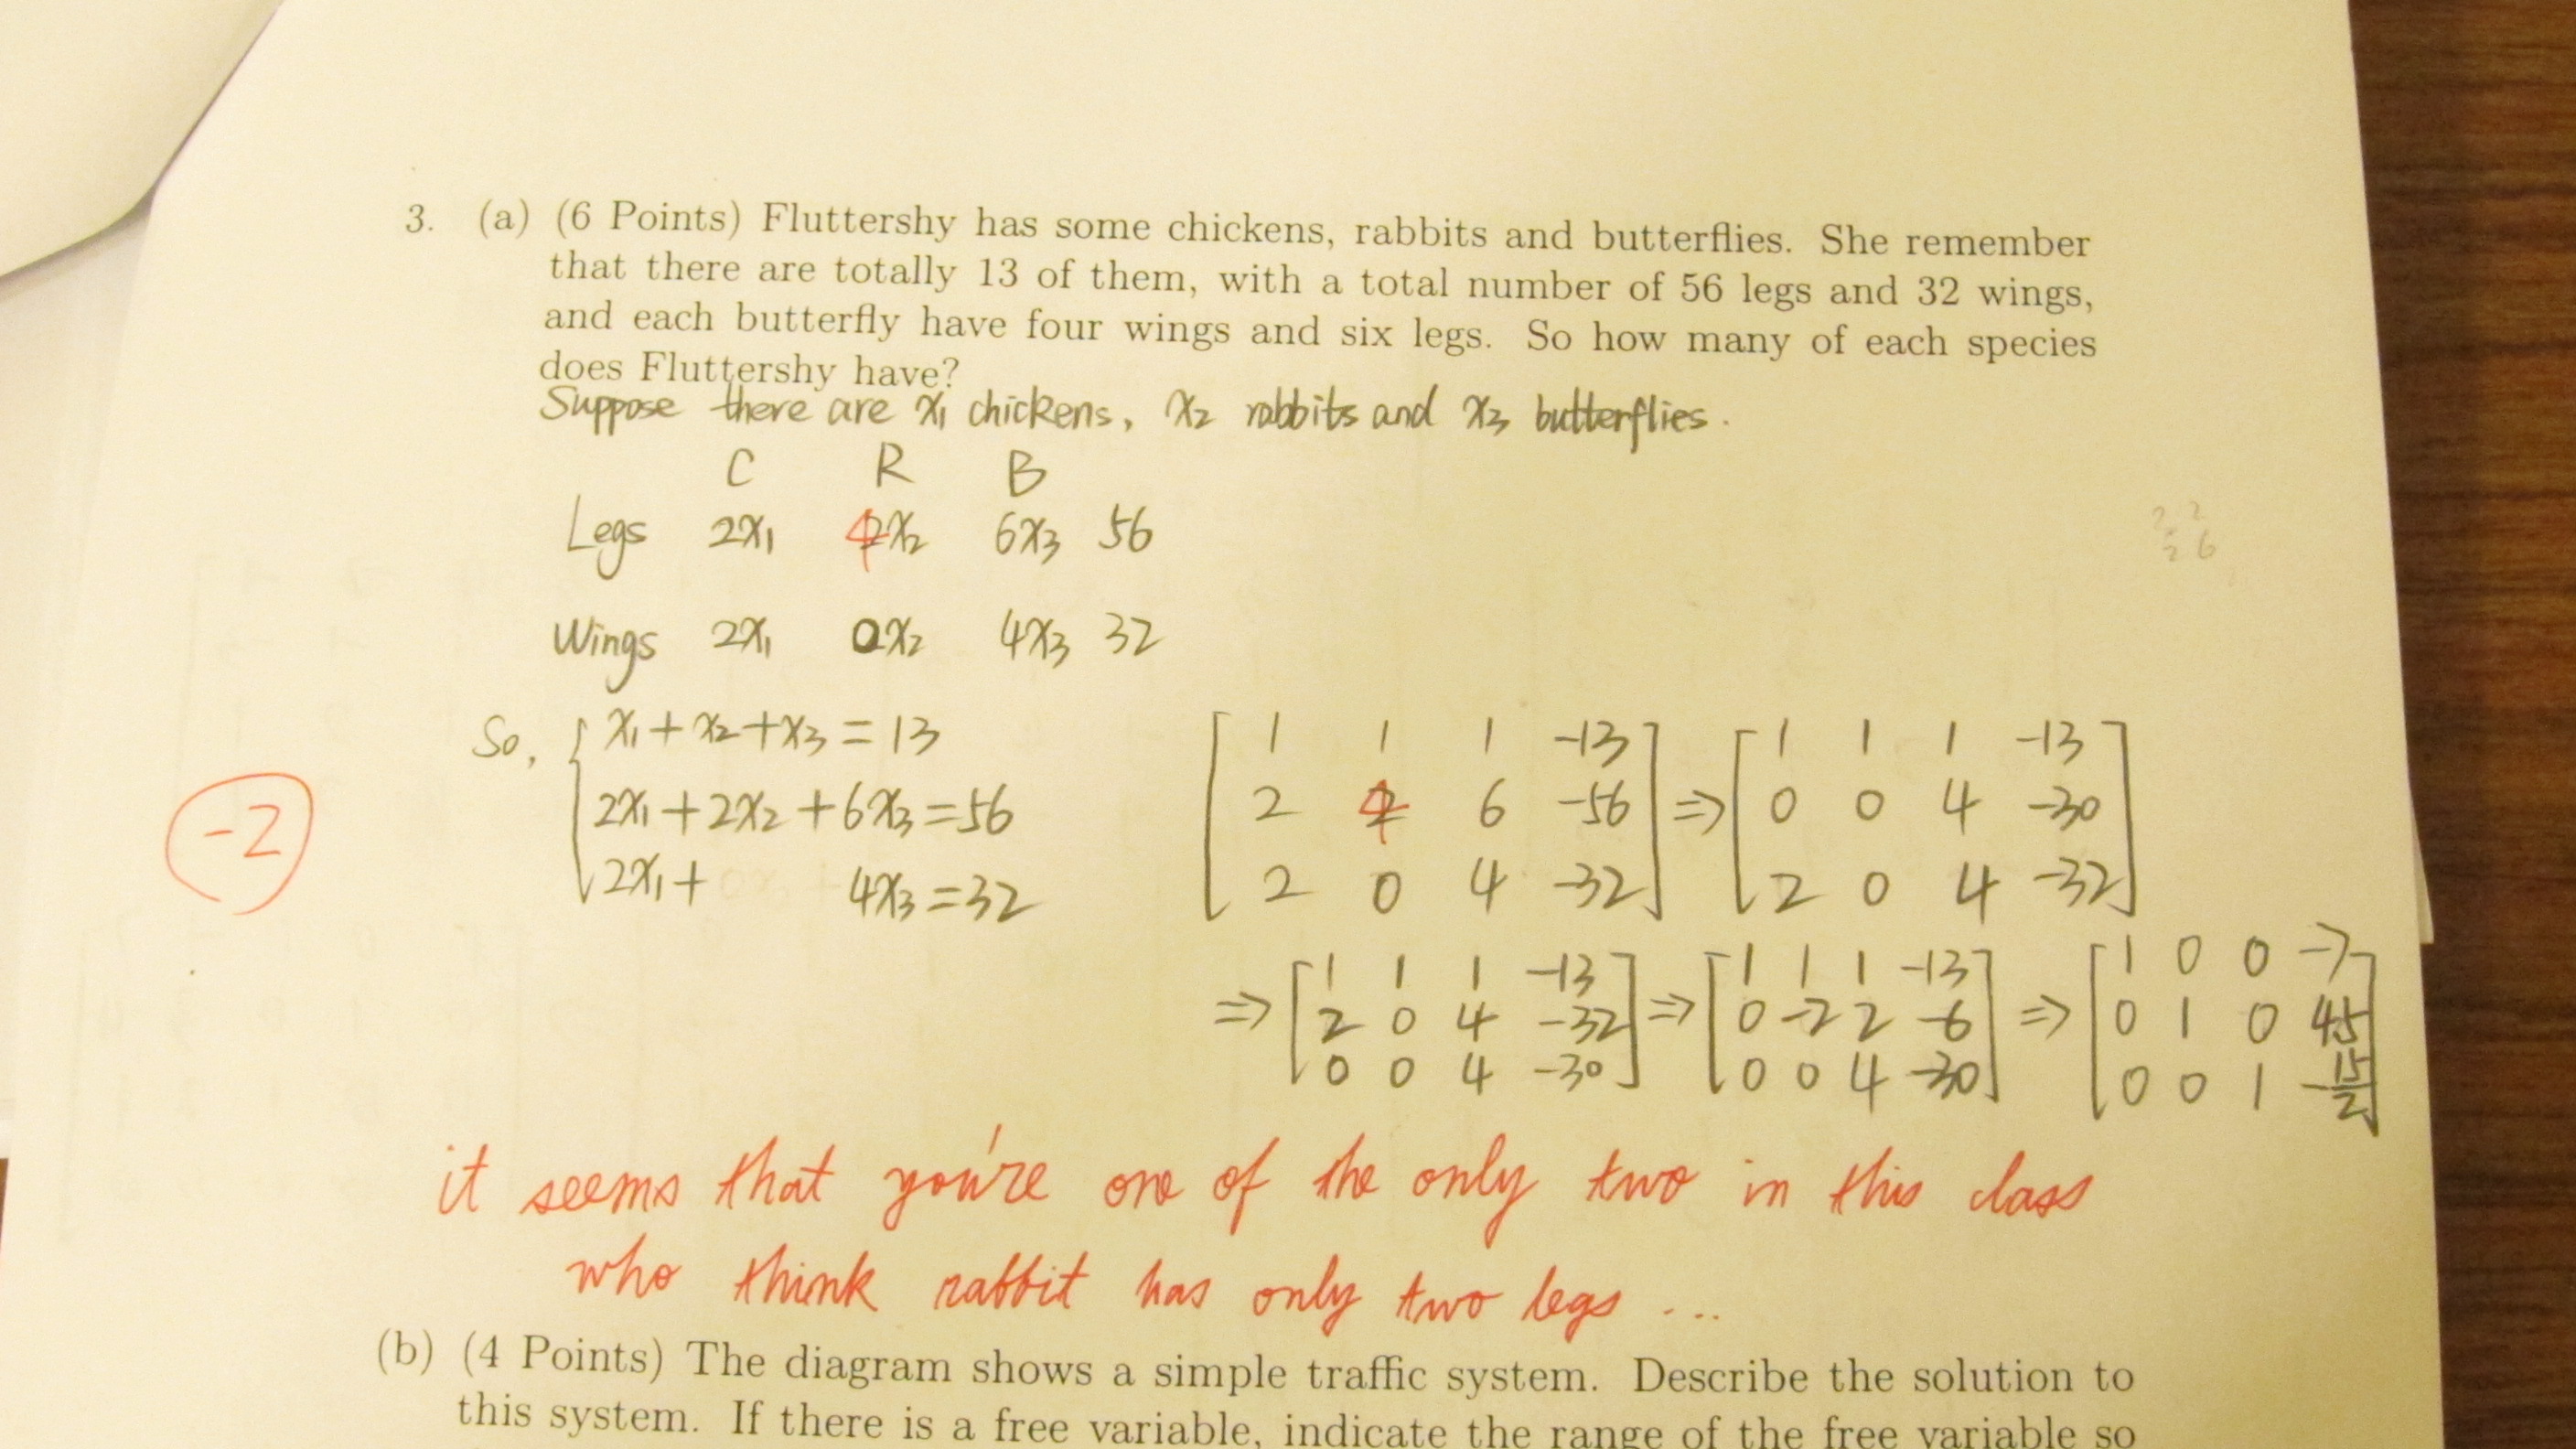 3. (a) (6 Points) Fluttershy has some chickens, rabbits and butterflies. She remember
that there are totally 13 of them, with a total number of 56 legs and 32 wings,
and each butterfly have four wings and six legs. So how many of each species
does Fluttershy have?
Suppose there are x₁ chickens, x₂ rabbits and x₃ butterflies.
C R B
Legs 2x₁ 4x₂ 6x₃ 56
Wings 2x₁ 0x₂ 4x₃ 32
So, { x₁+x₂+x₃=13
2x₁+2x₂+6x₃=56
2x₁+ 4x₃=32
-2
[ 1 1 1 -13 ] [ 1 1 1 -13 ]
[ 2 4 6 -56 ] ⇒ [ 0 0 4 -30 ]
[ 2 0 4 -32 ] [ 2 0 4 -32 ]
[ 1 1 1 -13 ] [ 1 1 1 -13 ] [ 1 0 0 -7 ]
⇒ [ 2 0 4 -32 ] ⇒ [ 0 -2 2 -6 ] ⇒ [ 0 1 0 4.5 ]
[ 0 0 4 -30 ] [ 0 0 4 -30 ] [ 0 0 1 -15/2 ]
it seems that you're one of the only two in this class
who think rabbit has only two legs ...
(b) (4 Points) The diagram shows a simple traffic system. Describe the solution to
this system. If there is a free variable, indicate the range of the free variable so